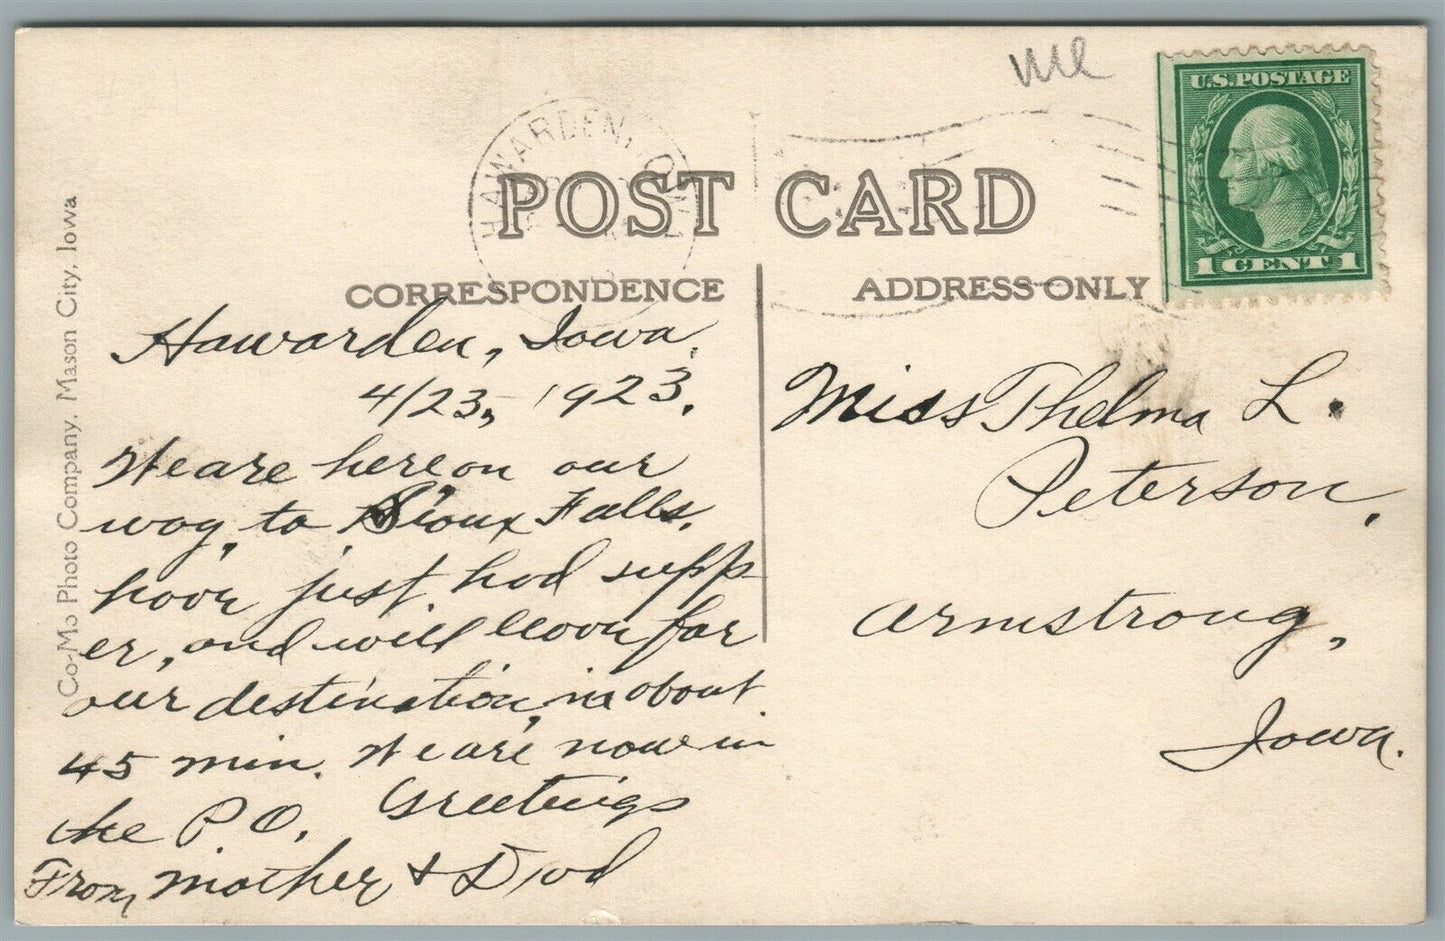 me
U.S. POSTAGE
1 CENT 1
HAWARDEN, IOWA
POST CARD
CORRESPONDENCE
ADDRESS ONLY
Co-Mo Photo Company, Mason City, Iowa
Hawarden, Iowa.
4/23, 1923.
We are here, on our
way, to Sioux Falls,
have just had supp-
er, and will leave for
our destination, in about
45 min. We are now in
the P.O. Greetings
From mother & Dad
Miss Thelma L.
Peterson,
Armstrong,
Iowa.